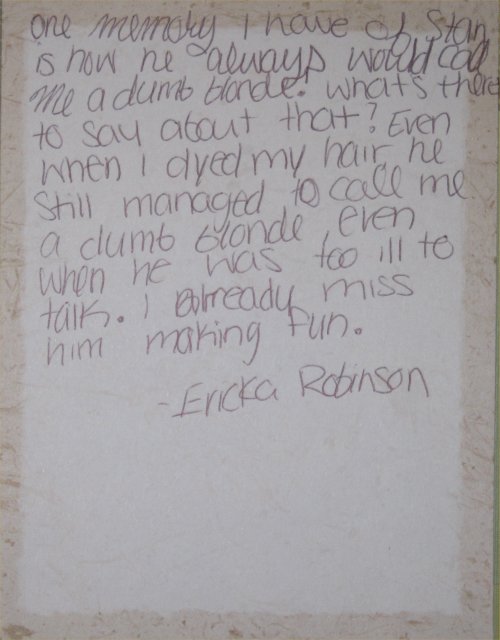 one memory I have of Stan
is how he always would call
me a dumb blonde! what's there
to say about that? Even
when I dyed my hair he
still managed to call me
a dumb blonde, even
when he was too ill to
talk. I already miss
him making fun.
-Ericka Robinson